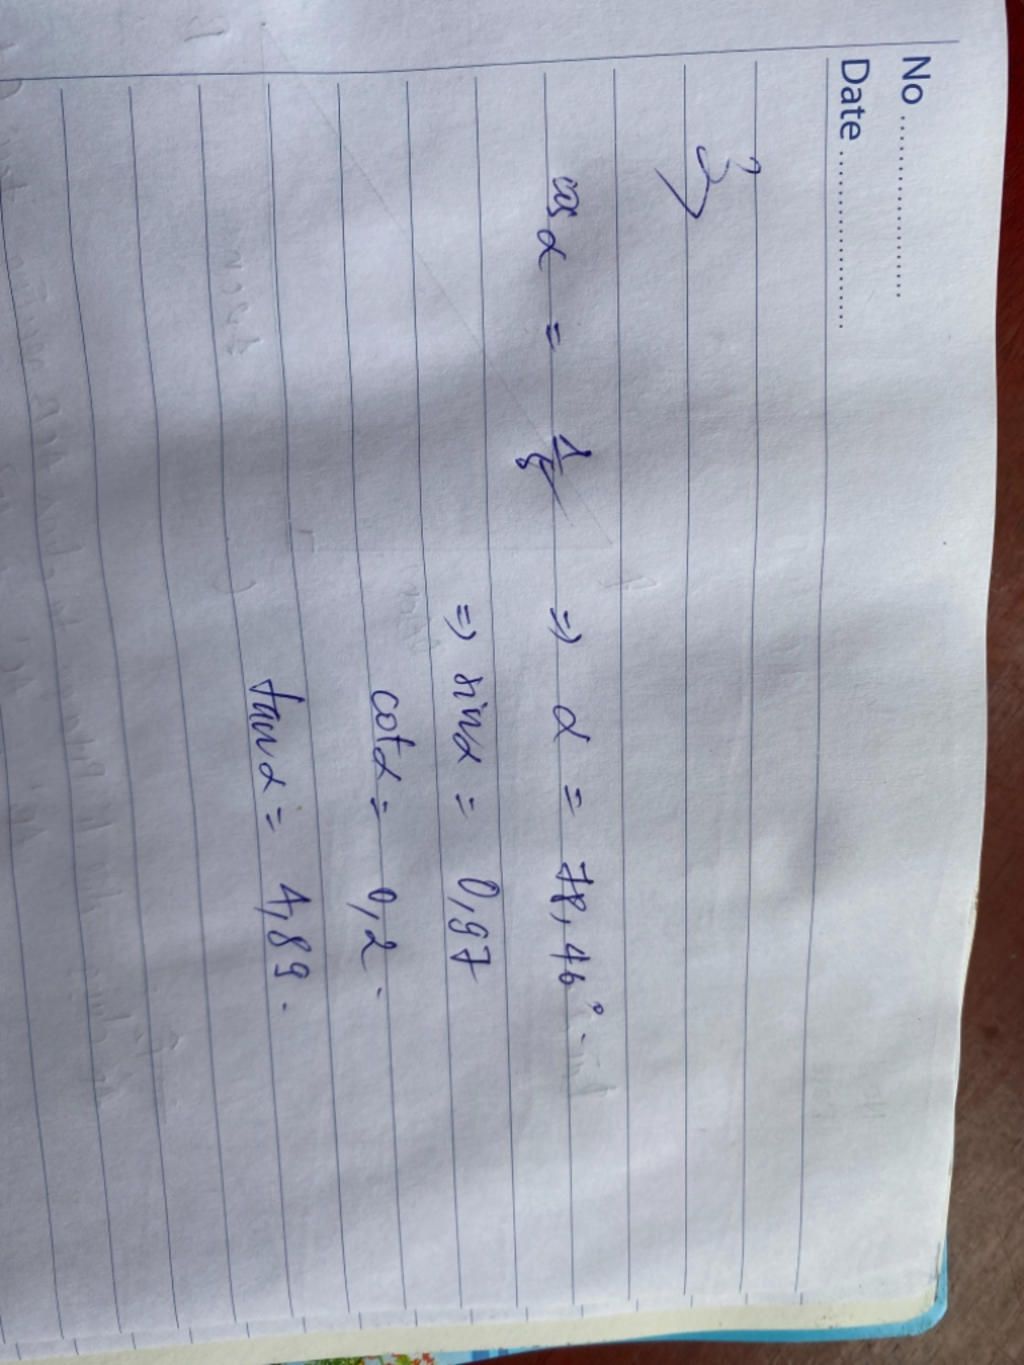 No ....................
Date ....................
cos α = 1/5 => α = 78,46°.
=> sin α = 0,97
cot α = 0,2.
tan α = 4,89.